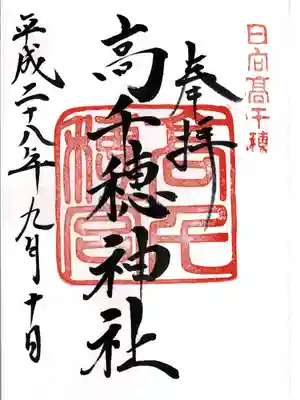 日向高千穂
奉拝
高千穂神社
高千穂宮
平成二十八年九月十日